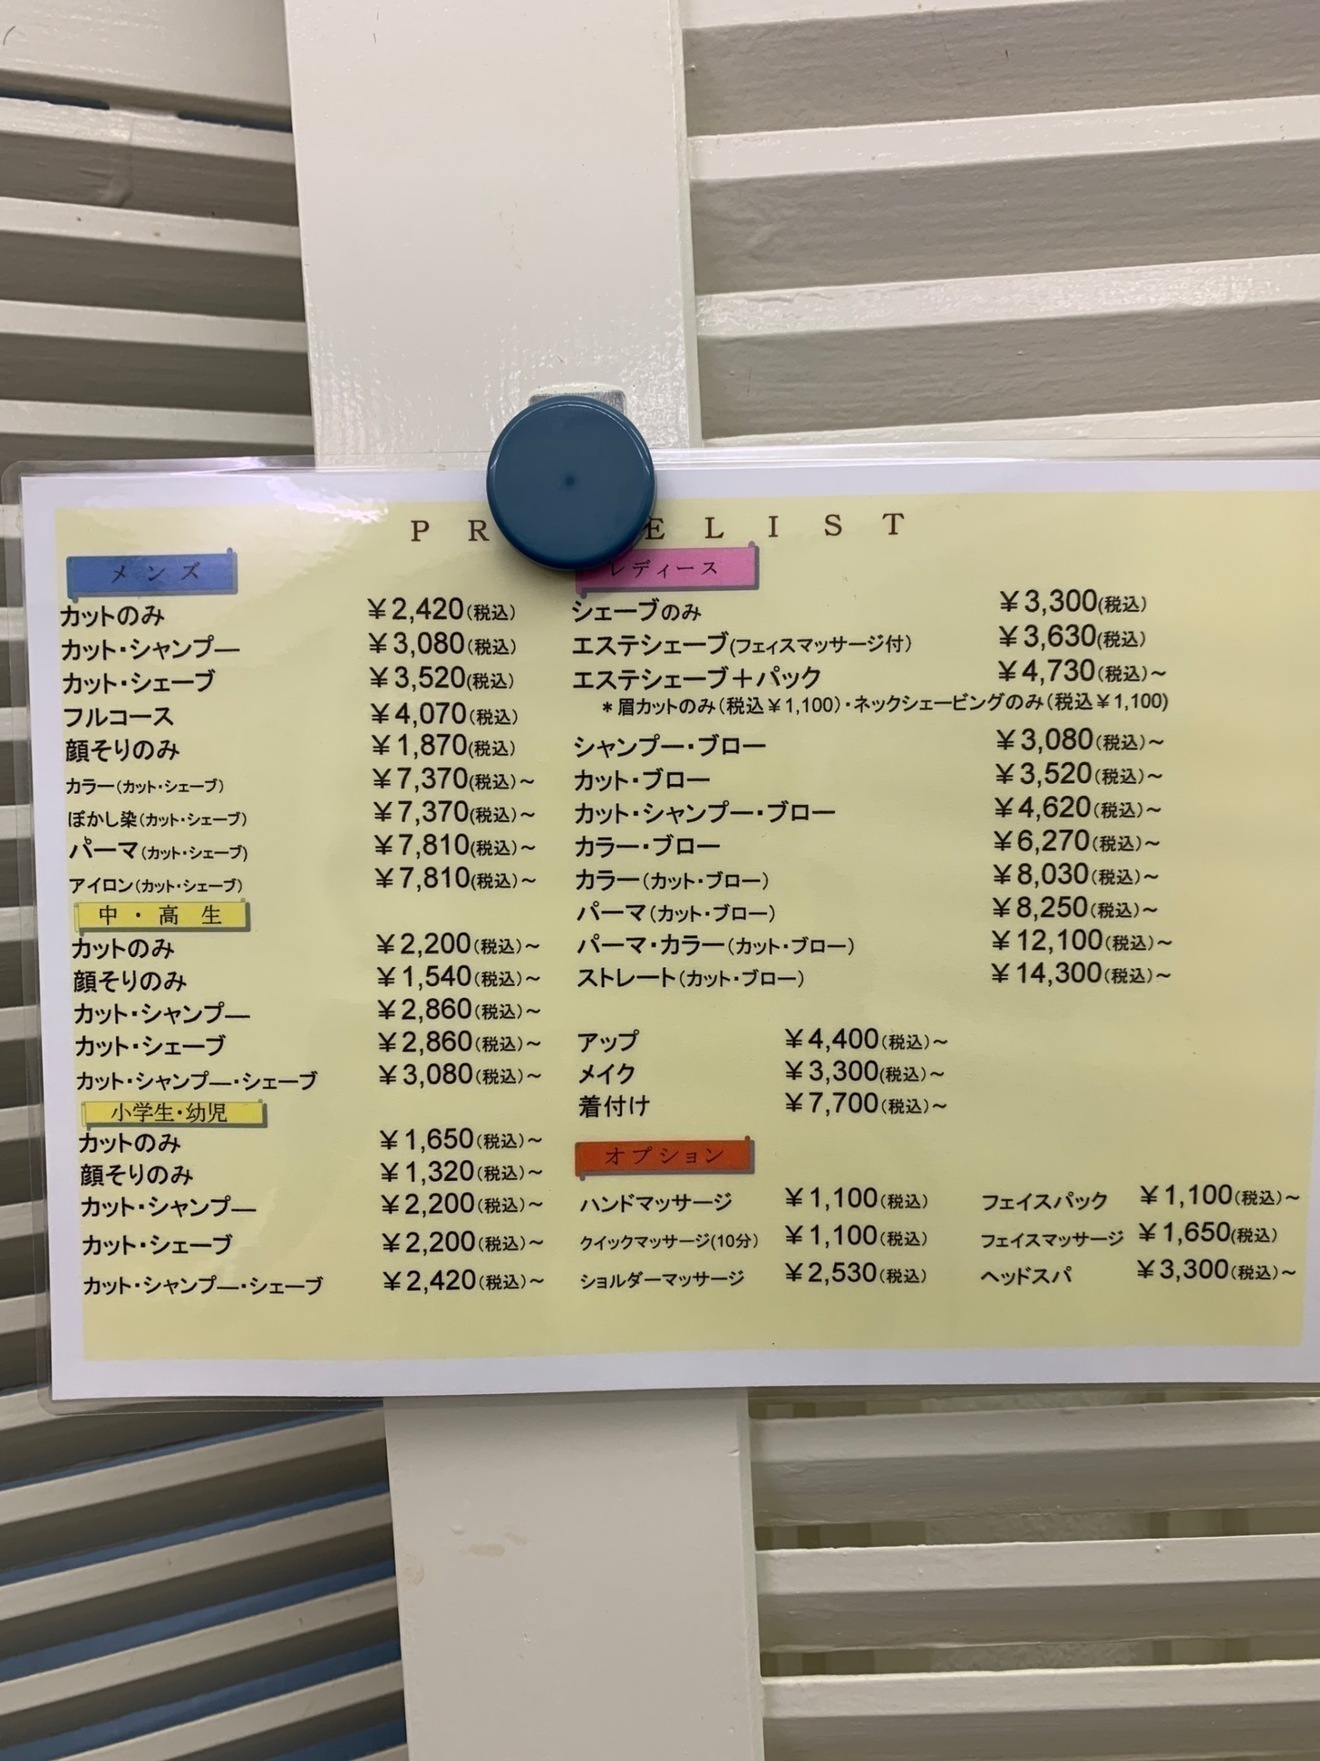 PR ELIST
メンズ
カットのみ ￥2,420(税込)
カット・シャンプー ￥3,080(税込)
カット・シェーブ ￥3,520(税込)
フルコース ￥4,070(税込)
顔そりのみ ￥1,870(税込)
カラー(カット・シェーブ) ￥7,370(税込)～
ぼかし染(カット・シェーブ) ￥7,370(税込)～
パーマ(カット・シェーブ) ￥7,810(税込)～
アイロン(カット・シェーブ) ￥7,810(税込)～
中・高生
カットのみ ￥2,200(税込)～
顔そりのみ ￥1,540(税込)～
カット・シャンプー ￥2,860(税込)～
カット・シェーブ ￥2,860(税込)～
カット・シャンプー・シェーブ ￥3,080(税込)～
小学生・幼児
カットのみ ￥1,650(税込)～
顔そりのみ ￥1,320(税込)～
カット・シャンプー ￥2,200(税込)～
カット・シェーブ ￥2,200(税込)～
カット・シャンプー・シェーブ ￥2,420(税込)～
レディース
シェーブのみ ￥3,300(税込)
エステシェーブ(フェィスマッサージ付) ￥3,630(税込)
エステシェーブ＋パック ￥4,730(税込)～
＊眉カットのみ(税込￥1,100)・ネックシェービングのみ(税込￥1,100)
シャンプー・ブロー ￥3,080(税込)～
カット・ブロー ￥3,520(税込)～
カット・シャンプー・ブロー ￥4,620(税込)～
カラー・ブロー ￥6,270(税込)～
カラー(カット・ブロー) ￥8,030(税込)～
パーマ(カット・ブロー) ￥8,250(税込)～
パーマ・カラー(カット・ブロー) ￥12,100(税込)～
ストレート(カット・ブロー) ￥14,300(税込)～
アップ ￥4,400(税込)～
メイク ￥3,300(税込)～
着付け ￥7,700(税込)～
オプション
ハンドマッサージ ￥1,100(税込) フェイスパック ￥1,100(税込)～
クイックマッサージ(10分) ￥1,100(税込) フェイスマッサージ ￥1,650(税込)
ショルダーマッサージ ￥2,530(税込) ヘッドスパ ￥3,300(税込)～